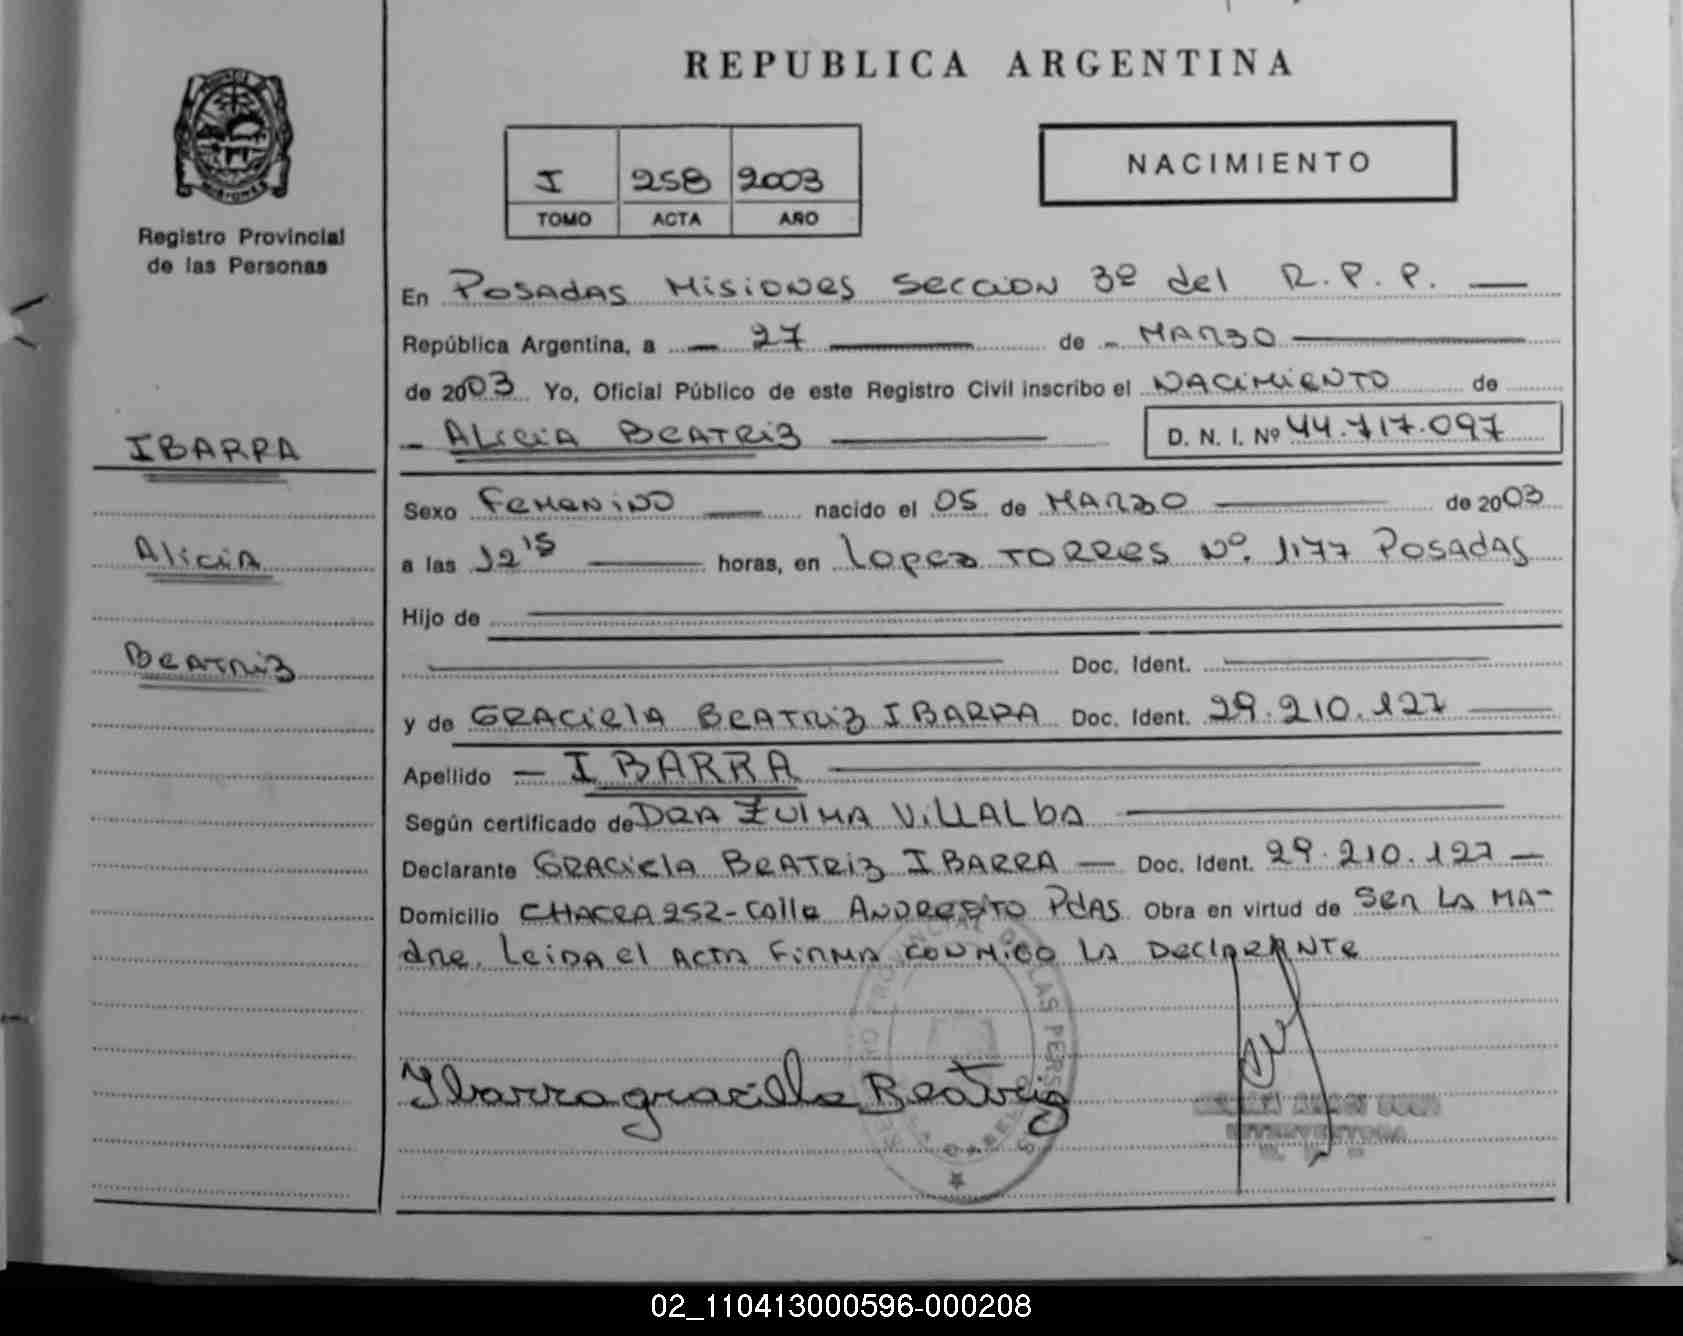 REPUBLICA ARGENTINA
MISIONES
Registro Provincial
de las Personas
I 258 2003
TOMO ACTA AÑO
NACIMIENTO
En Posadas Misiones Seccion 3º del R. P. P.
República Argentina, a 27 de MARZO
de 2003 Yo, Oficial Público de este Registro Civil inscribo el NACIMIENTO de
ALICIA BEATRIZ D. N. I. Nº 44.717.097
IBARRA
Alicia
Beatriz
Sexo Femenino nacido el 05 de MARZO de 2003
a las 12'15 horas, en Lopez TORRES Nº 1177 POSADAS
Hijo de
Doc. Ident.
y de GRACIELA BEATRIZ IBARRA Doc. Ident. 29.210.127
Apellido IBARRA
Según certificado de DRA ZULMA VILLALBA
Declarante GRACIELA BEATRIZ IBARRA Doc. Ident. 29.210.127
Domicilio CHACRA 252-Calle ANDRESITO PdAS Obra en virtud de Ser LA MA-
dre. Leida el ACTA FIRMA CONMIGO LA DECLARANTE
Ibarra graciella Beatriz
02_110413000596-000208